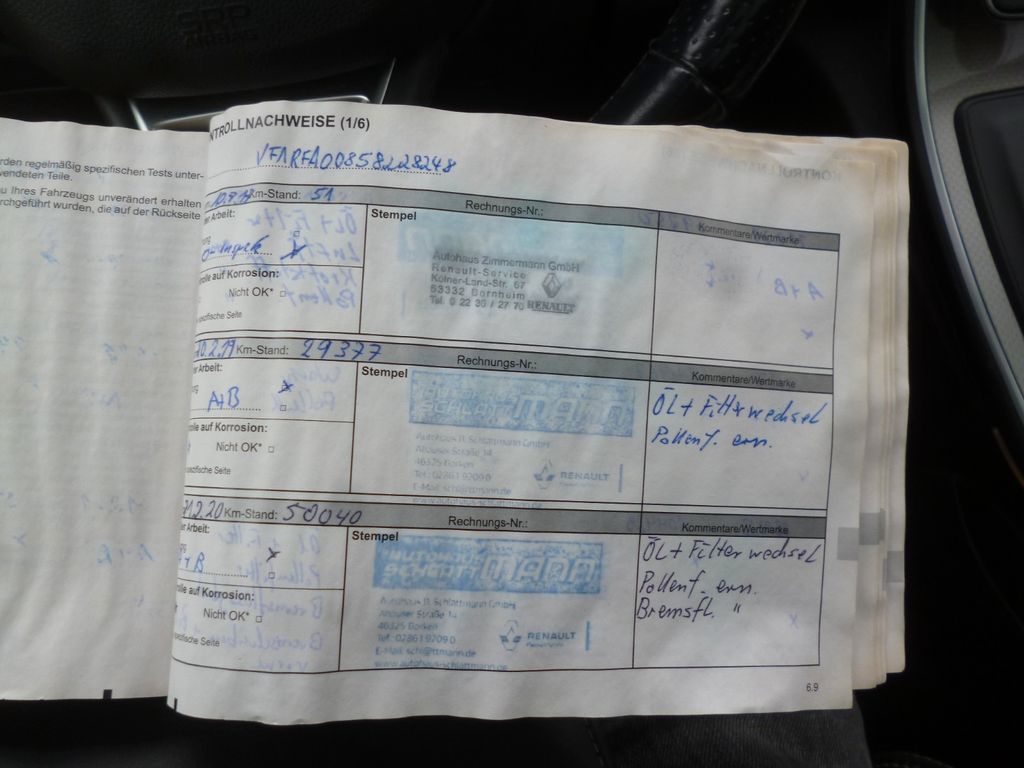 NTROLLNACHWEISE (1/6)
VFARFA00858228248
rden regelmäßig spezifischen Tests unter-
wendeten Teile.
u Ihres Fahrzeugs unverändert erhalten
rchgeführt wurden, die auf der Rückseite
Km-Stand: 51 Rechnungs-Nr.:
er Arbeit:
Stempel
Kommentare/Wertmarke
Autohaus Zimmermann GmbH
Renault-Service
Kölner-Land-Str. 67
53332 Bornheim
Tel. 0 22 36 / 27 70
RENAULT
olle auf Korrosion:
Nicht OK*
spezifische Seite
20.2.19 Km-Stand: 29377 Rechnungs-Nr.:
er Arbeit:
A+B
Stempel
Kommentare/Wertmarke
MANN
Autohaus H. Schlattmann GmbH
Ahauser Straße 14
46325 Borken
Tel.: 02861 9209 0
RENAULT
www.autohaus-schlattmann.de
ÖL + Filterwechsel
Pollenf. ern.
olle auf Korrosion:
Nicht OK*
spezifische Seite
2.20 Km-Stand: 50040 Rechnungs-Nr.:
er Arbeit:
+B
Stempel
Kommentare/Wertmarke
MANN
Autohaus H. Schlattmann GmbH
Ahauser Straße 14
46325 Borken
Tel.: 02861 9209 0
RENAULT
www.autohaus-schlattmann.de
ÖL + Filterwechsel
Pollenf. ern.
Bremsfl. "
olle auf Korrosion:
Nicht OK*
spezifische Seite
6.9